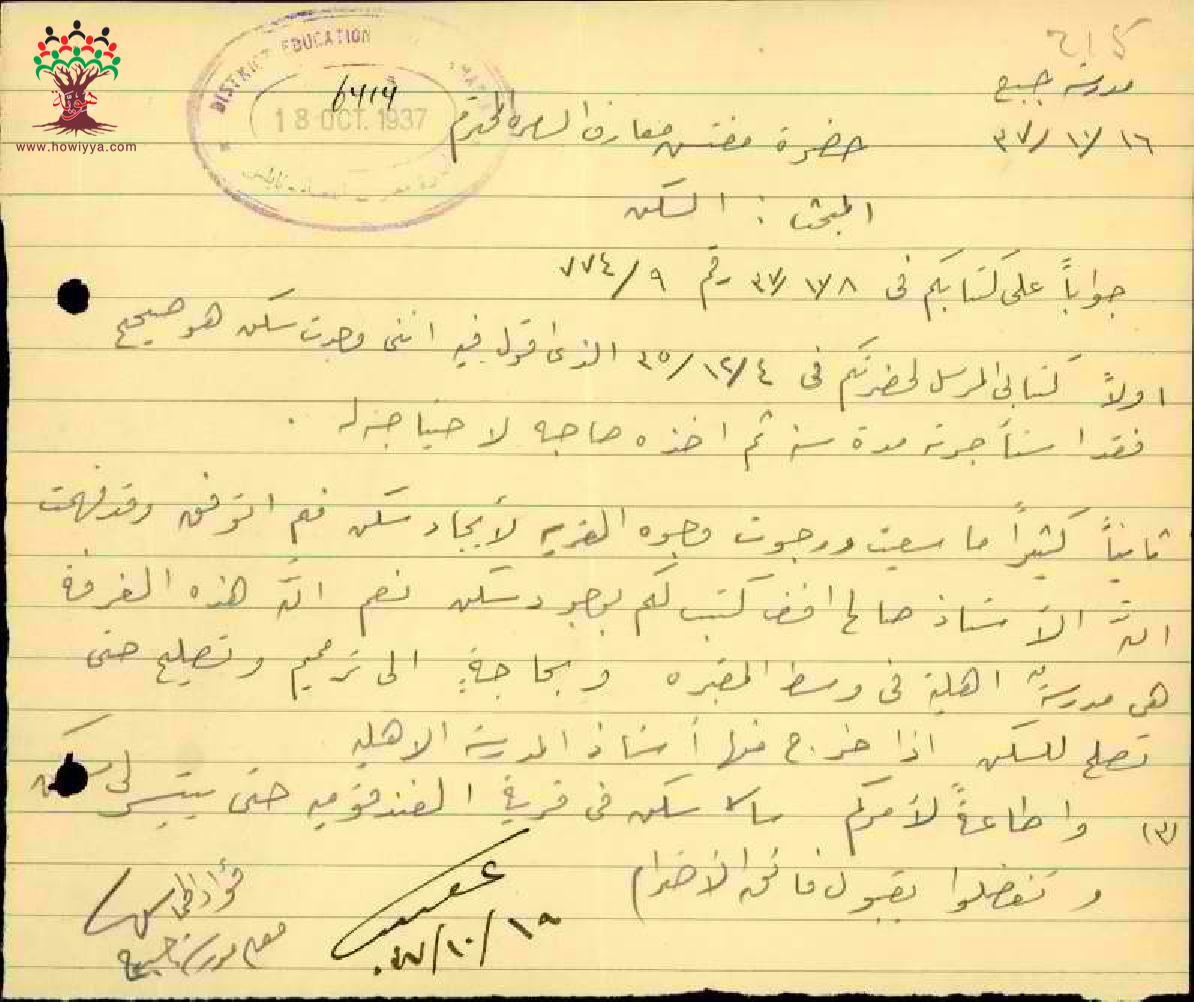 هوية
www.howiyya.com
DISTRICT EDUCATION
6414
18 OCT. 1937
مدرسة جبع
٣٧/١٠/١٦
حضرة مفتش معارف السامرة المحترم
المبحث : السكن
جواباً على كتابكم في ٣٧/١٠/٨ رقم ٧٧٤/٩
اولاً كتابي المرسل لحضرتكم في ٣٥/١٢/٤ الذي اقول فيه انني وجدت سكن هو صحيح
فقد استأجرته مدة سنة ثم اخذه صاحبه لاحتياجه له .
ثانياً كثيراً ما سعيت ورجوت وجوه القرية لأيجاد سكن فلم اتوفق وقد فهمت
ان الأستاذ صالح افندي كتب لكم بوجود سكن نعم ان هذه الغرفة
هي مدرسة اهلية في وسط المقبره وبحاجة الى ترميم وتصليح حتى
تصلح للسكن اذا خرج منها أستاذ المدرسة الاهلية
(٣) واطاعةً لأمركم سأسكن في قرية الفندقومية حتى يتيسر لي سكن
وتفضلوا بقبول فائق الأحترام
فؤاد
معلم مدرسة جبع
٣٧/١٠/١٩